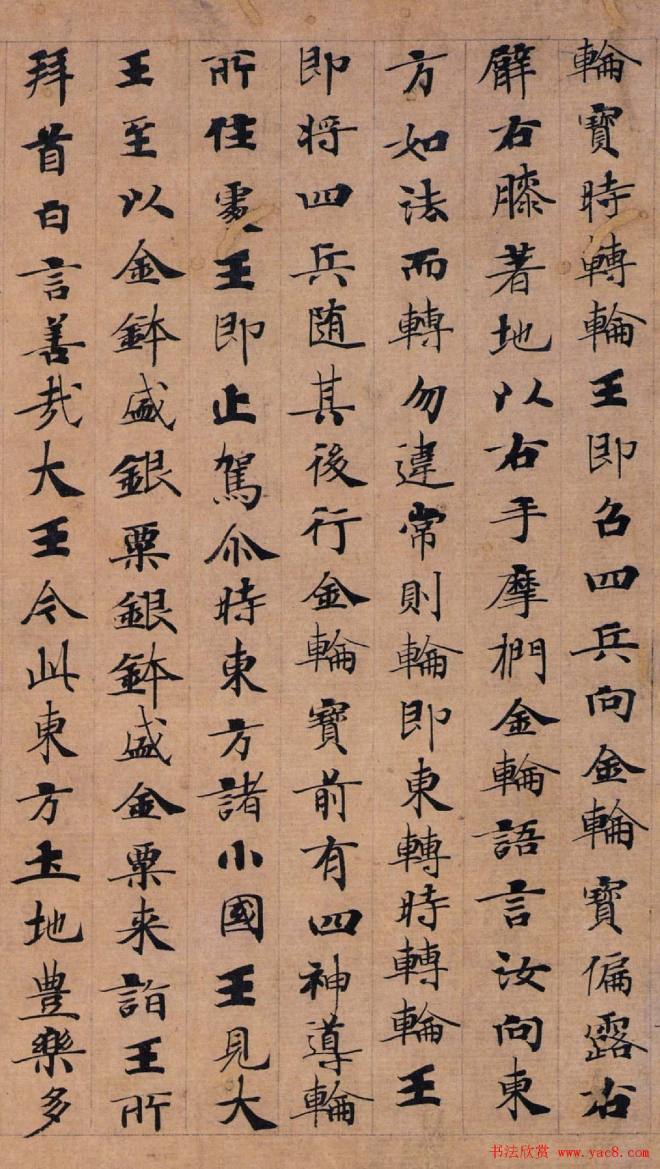 輪寶時轉輪王即召四兵向金輪寶偏露右
臂右膝著地以右手摩捫金輪語言汝向東
方如法而轉勿違常則輪即東轉時轉輪王
即将四兵随其後行金輪寶前有四神導輪
所住處王即止駕尒時東方諸小國王見大
王至以金鉢盛銀粟銀鉢盛金粟来詣王所
拜首白言善哉大王今此東方土地豊樂多
书法欣赏 www.yac8.com